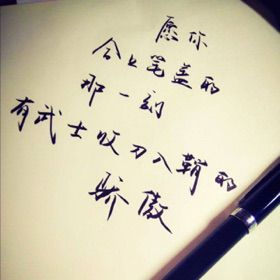 愿你
合上笔盖的
那一刻
有武士收刀入鞘的
骄傲